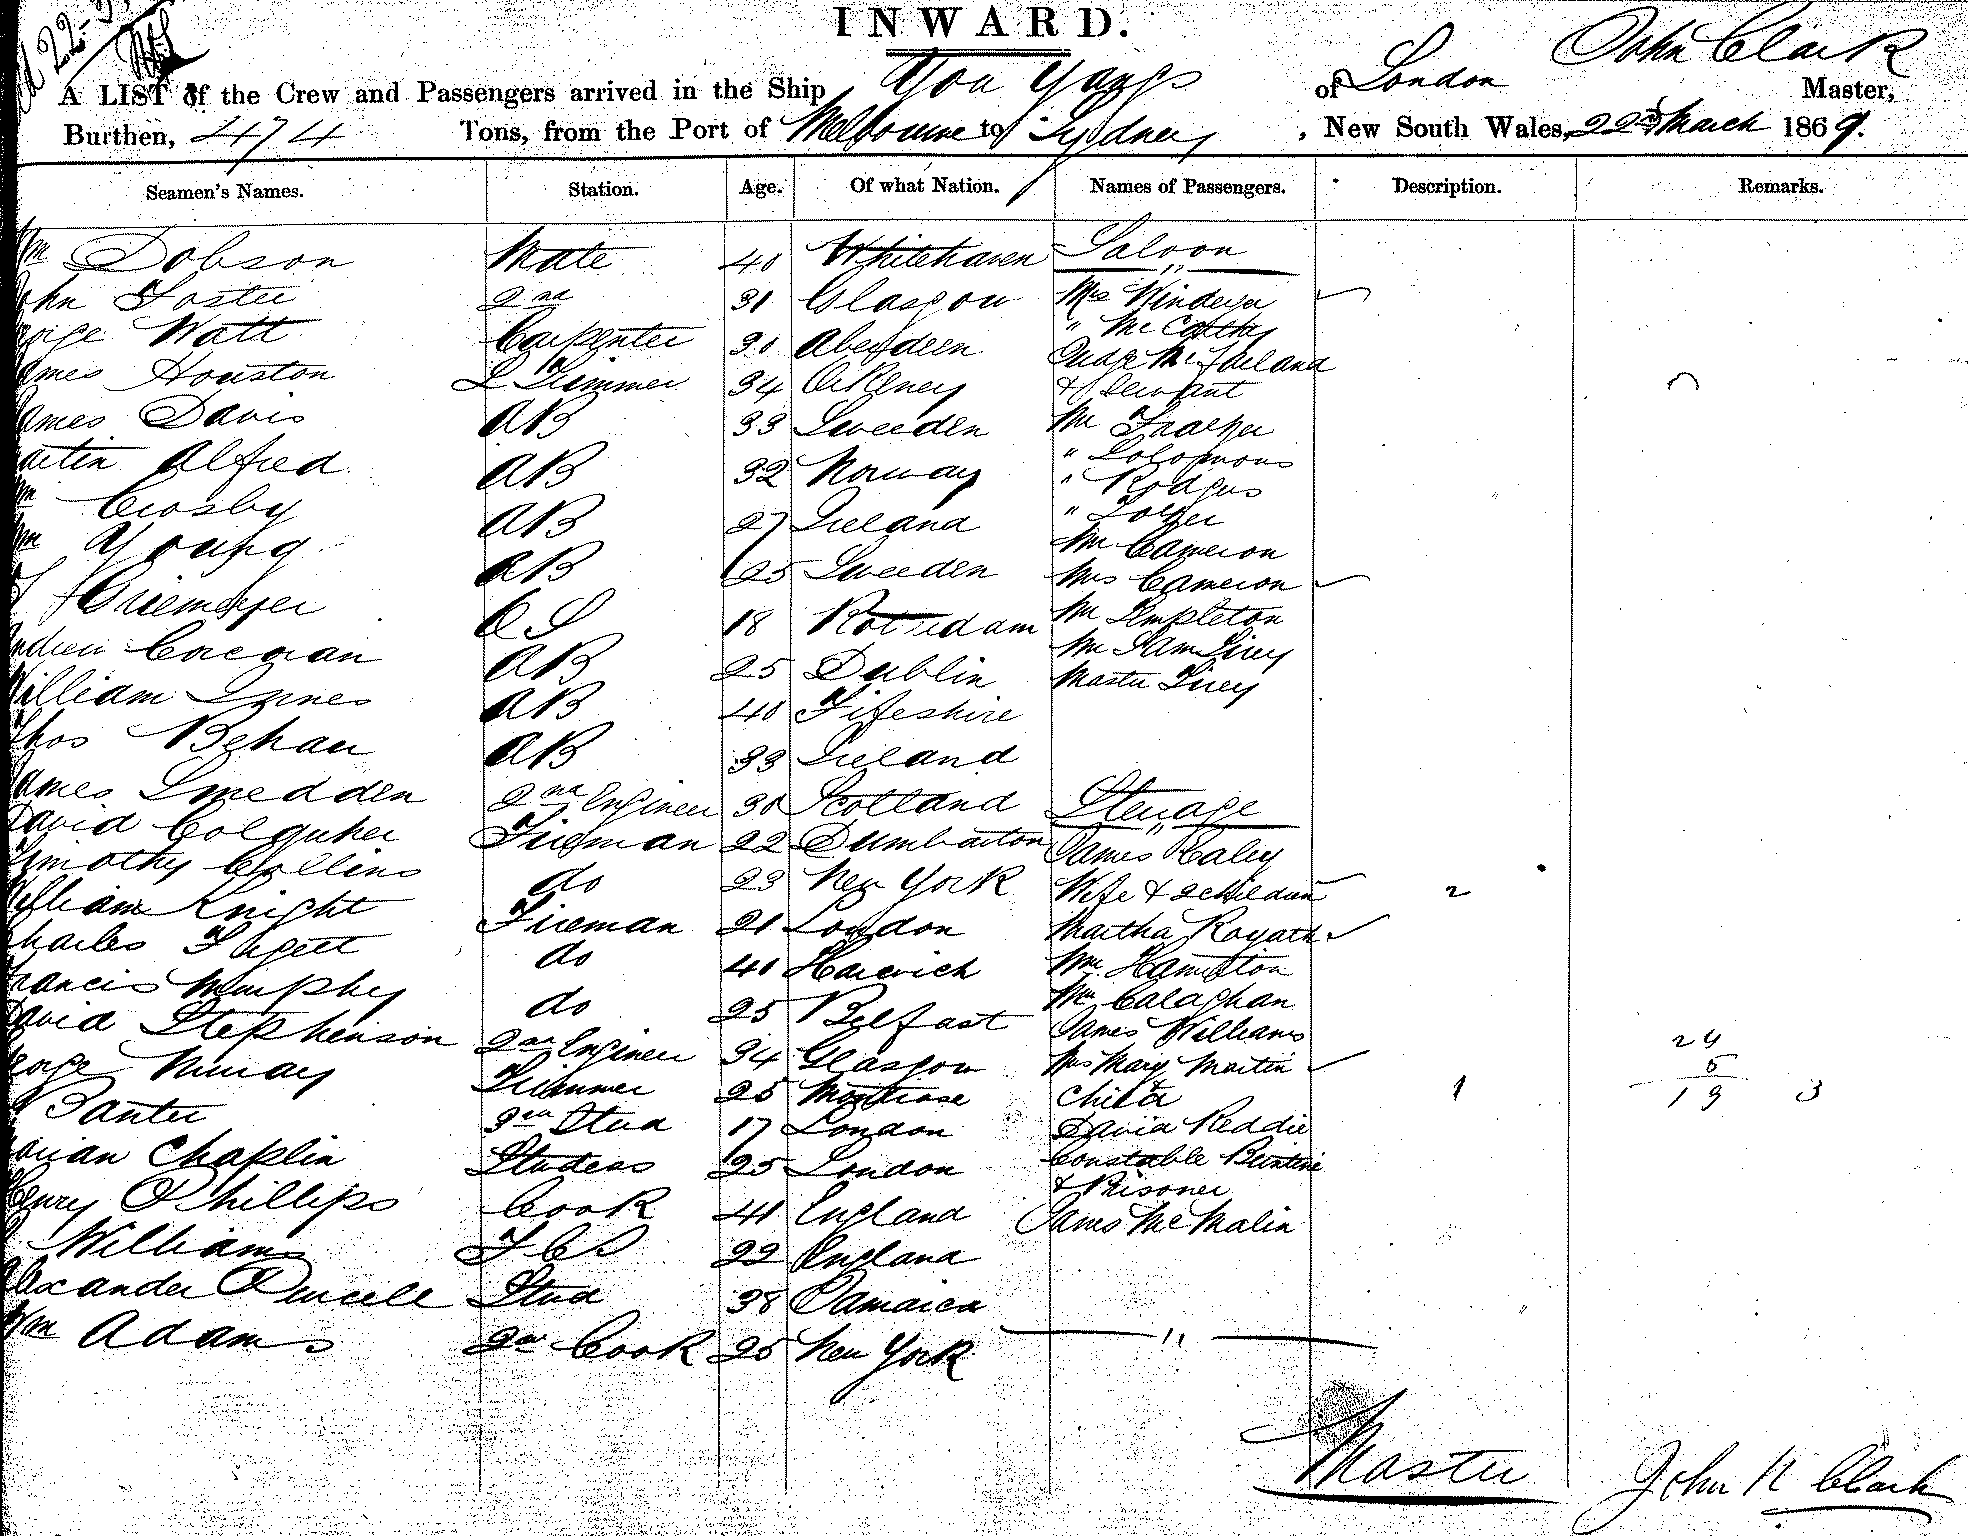 INWARD.
A LIST of the Crew and Passengers arrived in the Ship You Yangs of London John Clark Master,
Burthen, 474 Tons, from the Port of Melbourne to Sydney, New South Wales, 22nd March 1869.
Seamen's Names. Station. Age. Of what Nation. Names of Passengers. Description. Remarks.
Wm Dobson Mate 40 Whitehaven Saloon
John Foster 2nd 31 Glasgow Mrs Windeyer
George Watt Carpenter 30 Aberdeen " McCarthy
James Houston L Trimmer 34 Orkney Judge McFarland
& Servant
James Davis AB 33 Sweeden Mr
Martin Alfred AB 32 Norway " Solomons
Wm Crosby AB 27 Ireland " Rodgers
Wm Young AB 25 Sweeden Mr Cameron
OS 18 Rotterdam Mrs Cameron
Andrew Corcoran AB 25 Dublin Mr Templeton
William Innes AB 40 Fifeshire Mr Sam
Thos Behan AB 33 Ireland Master
James Smedden 2nd Engineer 30 Scotland Steerage
David Colquher Fireman 22 Dumbarton James Raley
Timothy Collins do 23 New York Wife & 2 children 2
William Knight Fireman 21 London Martha
Charles do 40 Harwich Wm Hamilton
Francis Murphy do 25 Belfast Wm Calaghan
David Stephenson 2nd Engineer 34 Glasgow James Williams
George Murray Trimmer 25 Montrose Mrs Mary Martin
Child 1
24
5
19 3
Banter 2nd Stud 17 London David Reddie
Chaplin Studess 25 London Constable
& Prisoner
Henry Phillips Cook 41 England James McMalin
Williams FCS 22 England
Alexander Purcell Stud 38 Jamaica
Wm Adams 2nd Cook 25 New York
Master John N Clark